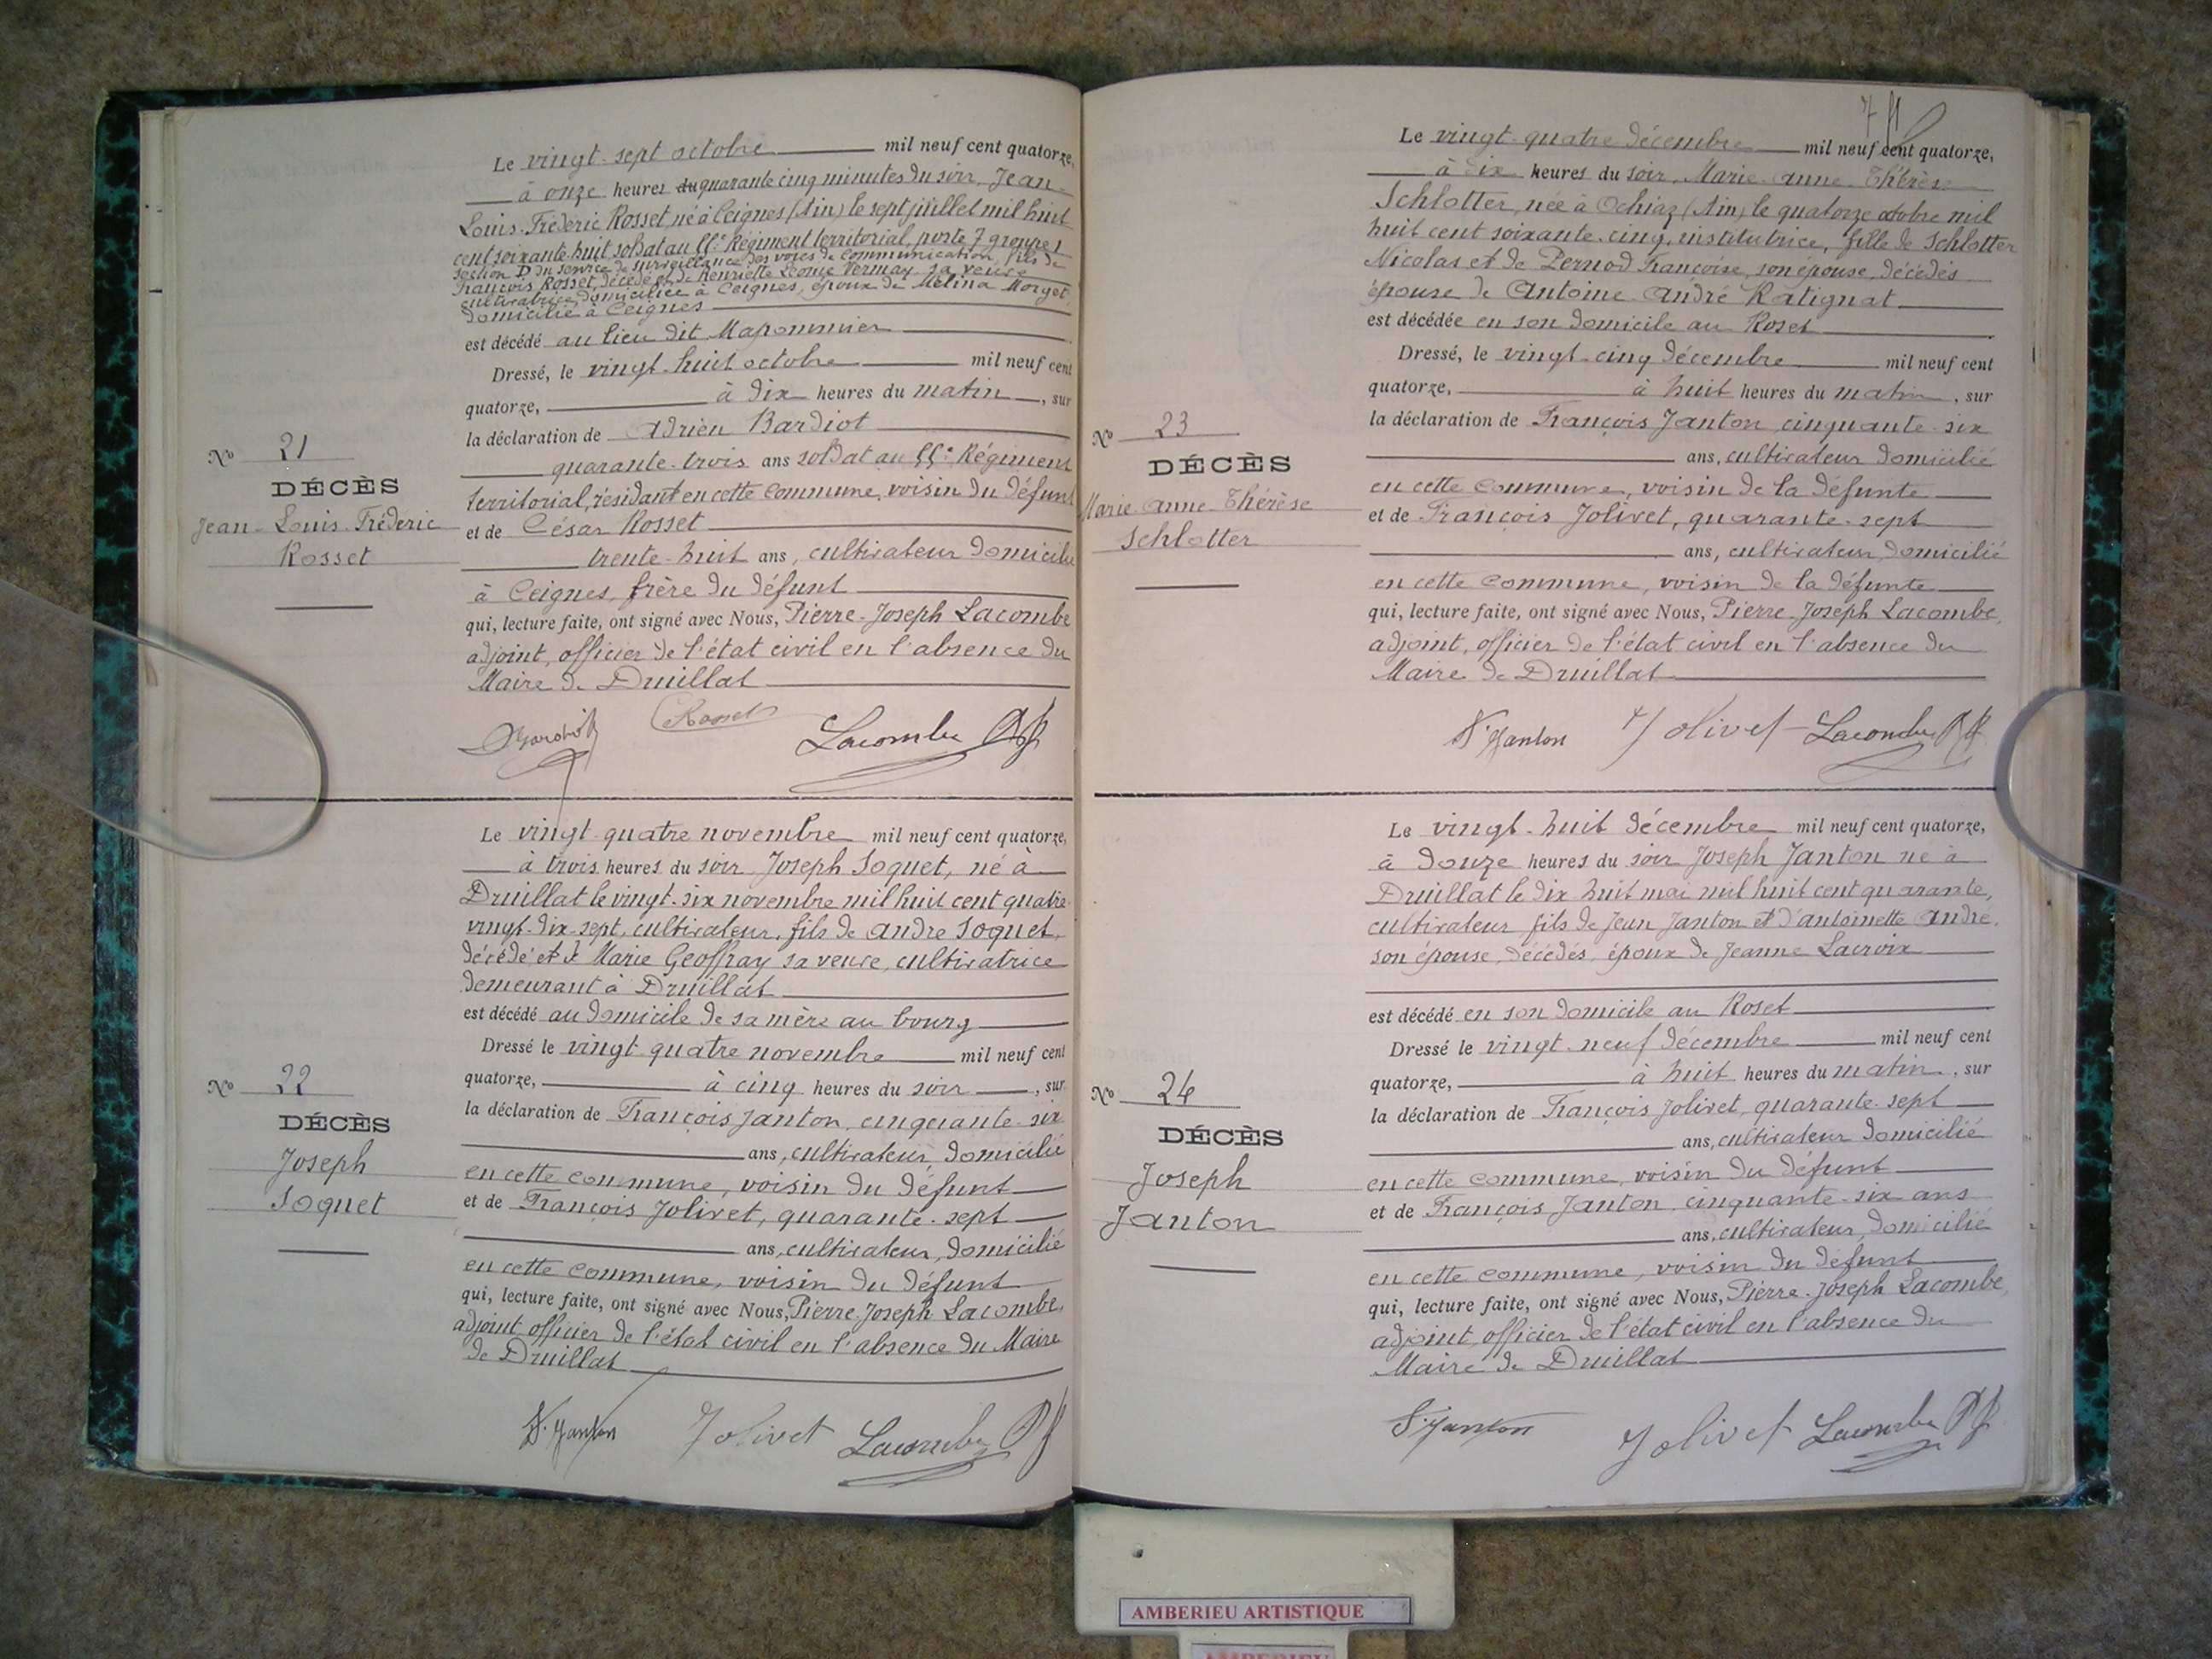 Le vingt-sept octobre mil neuf cent quatorze,
à onze heures du quarante cinq minutes du soir, Jean-
Louis-Frédéric Rosset, né à Ceignes (Ain) le sept juillet mil huit
cent soixante-huit soldat au 55e Régiment territorial, poste 7 groupe 1
section D du service de surveillance des voies de communication, fils de
François Rosset, décédé et de Henriette Léonie Vermay, sa veuve
cultivatrice domiciliée à Ceignes, époux de Mélina Morget,
domicilié à Ceignes
est décédé au lieu dit Mapommier
Dressé, le vingt-huit octobre mil neuf cent
quatorze, à dix heures du matin, sur
la déclaration de Adrien Bardiot
quarante-trois ans soldat au 55e Régiment
territorial, résidant en cette commune, voisin du défunt
et de César Rosset
trente-huit ans, cultivateur domicilié
à Ceignes, frère du défunt
qui, lecture faite, ont signé avec Nous, Pierre-Joseph Lacombe
adjoint, officier de l'état civil en l'absence du
Maire de Druillat
No 21
DÉCÈS
Jean-Louis-Frédéric
Rosset
Rosset Lacombe
Le vingt-quatre novembre mil neuf cent quatorze,
à trois heures du soir Joseph Soquet, né à
Druillat le vingt-six novembre mil huit cent quatre-
vingt-dix-sept, cultivateur, fils de André Soquet,
décédé et de Marie Geoffray sa veuve, cultivatrice
demeurant à Druillat
est décédé au domicile de sa mère au bourg
Dressé le vingt quatre novembre mil neuf cent
quatorze, à cinq heures du soir, sur
la déclaration de François Janton, cinquante-six
ans, cultivateur, domicilié
en cette commune, voisin du défunt
et de François Jolivet, quarante-sept
ans, cultivateur, domicilié
en cette commune, voisin du défunt
qui, lecture faite, ont signé avec Nous, Pierre-Joseph Lacombe,
adjoint, officier de l'état civil en l'absence du Maire
de Druillat
No 22
DÉCÈS
Joseph
Soquet
F. Janton Jolivet Lacombe
Le vingt-quatre décembre mil neuf cent quatorze,
à dix heures du soir, Marie-Anne-Thérèse
Schlotter, née à Ochiaz (Ain), le quatorze octobre mil
huit cent soixante-cinq, institutrice, fille de Schlotter
Nicolas et de Pernod Françoise, son épouse, décédés
épouse de Antoine-André Ratignat
est décédée en son domicile au Roset
Dressé, le vingt-cinq décembre mil neuf cent
quatorze, à huit heures du matin, sur
la déclaration de François Janton, cinquante-six
ans, cultivateur domicilié
en cette commune, voisin de la défunte
et de François Jolivet, quarante-sept
ans, cultivateur, domicilié
en cette commune, voisin de la défunte
qui, lecture faite, ont signé avec Nous, Pierre-Joseph Lacombe,
adjoint, officier de l'état civil en l'absence du
Maire de Druillat
No 23
DÉCÈS
Marie-Anne-Thérèse
Schlotter
F. Janton Jolivet Lacombe
Le vingt-huit décembre mil neuf cent quatorze,
à douze heures du soir Joseph Janton né à
Druillat le dix huit mai mil huit cent quarante,
cultivateur fils de Jean Janton et d'Antoinette André,
son épouse, décédés, époux de Jeanne Lacroix
est décédé en son domicile au Roset
Dressé le vingt-neuf décembre mil neuf cent
quatorze, à huit heures du matin, sur
la déclaration de François Jolivet, quarante-sept
ans, cultivateur domicilié
en cette commune, voisin du défunt
et de François Janton, cinquante-six ans
ans, cultivateur, domicilié
en cette commune, voisin du défunt
qui, lecture faite, ont signé avec Nous, Pierre-Joseph Lacombe,
adjoint, officier de l'état civil en l'absence du
Maire de Druillat
No 24
DÉCÈS
Joseph
Janton
F. Janton Jolivet Lacombe
AMBERIEU ARTISTIQUE
AMBERIEU